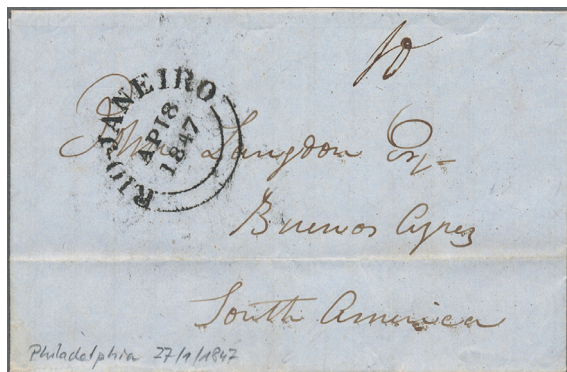 10
RIO JANEIRO
AP 18
1847
John Langdon Esqr
Buenos Ayres
South America
Philadelphia 27/1/1847